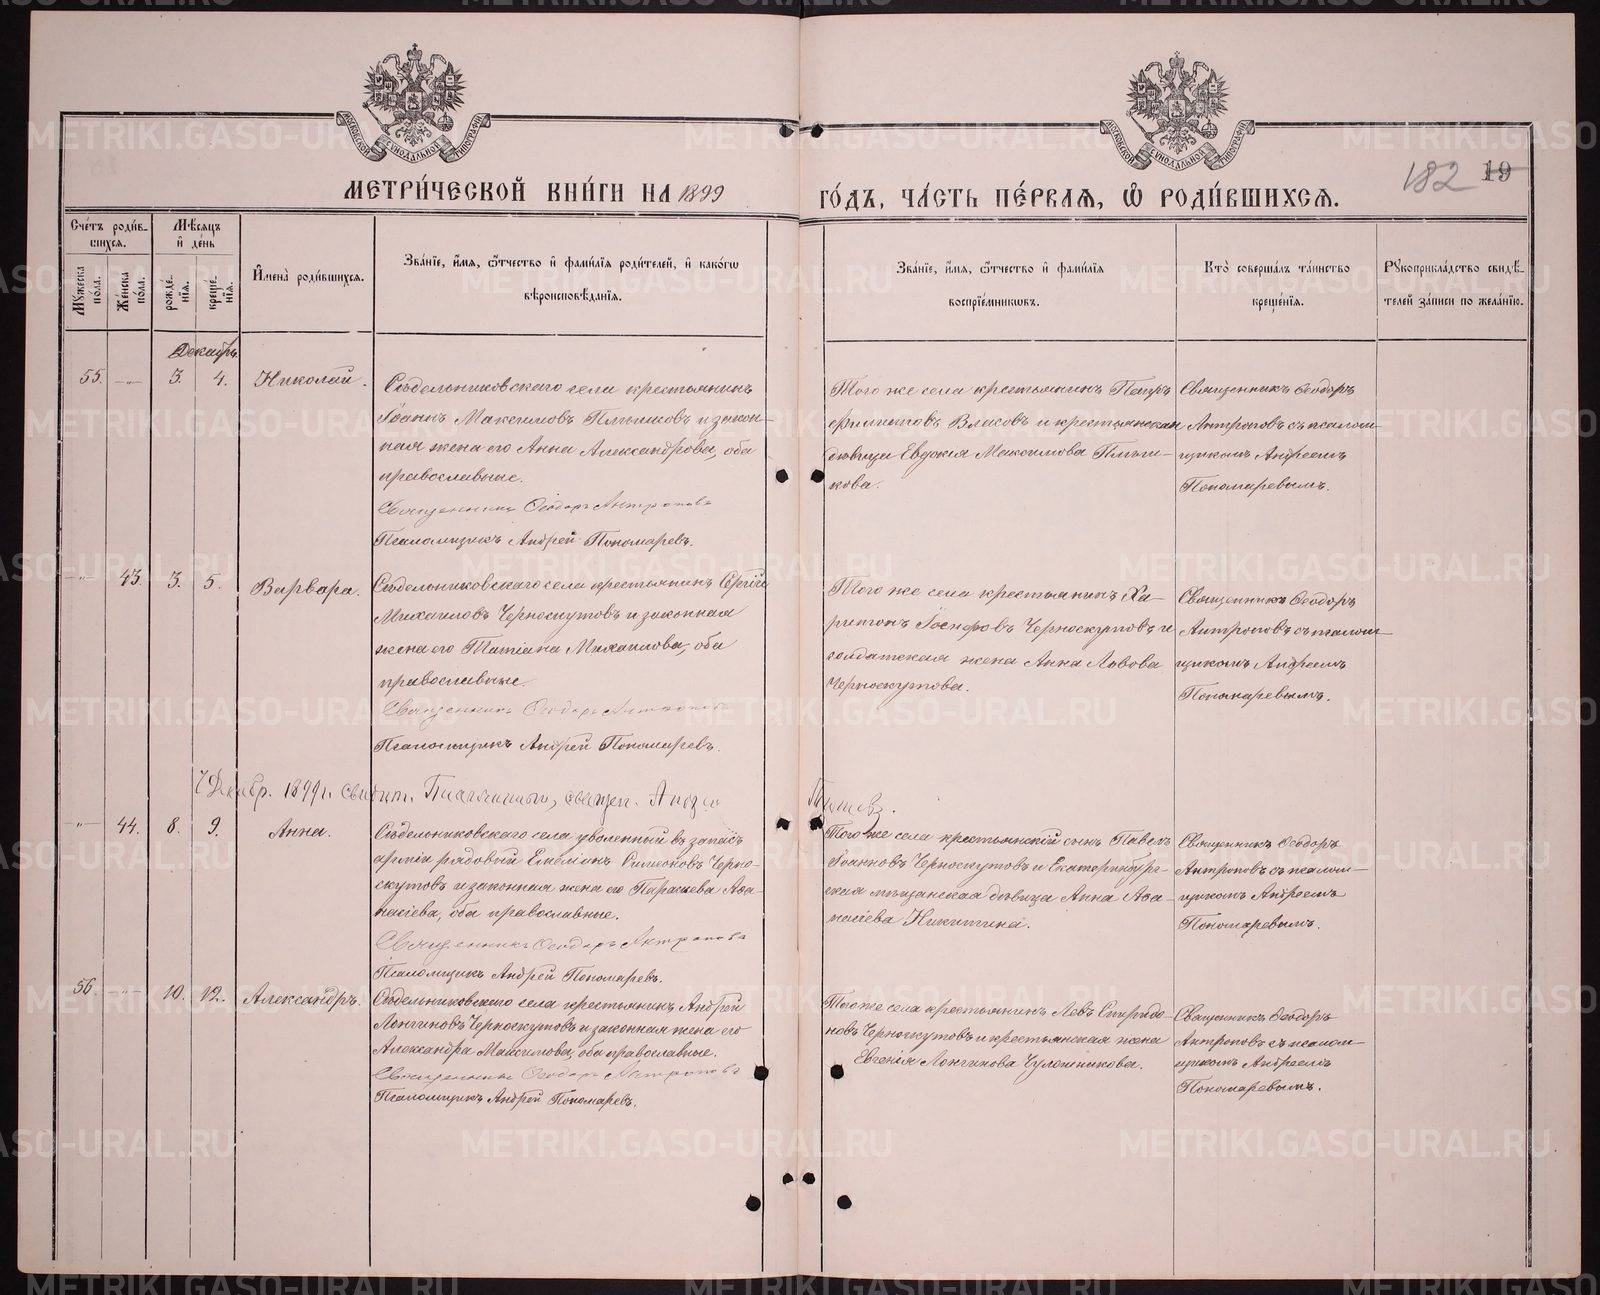 МОСКОВСКОЙ СѴНОДАЛЬНОЙ ТИПОГРАФІИ
МОСКОВСКОЙ СѴНОДАЛЬНОЙ ТИПОГРАФІИ
182 19
МЕТРИ́ЧЕСКОЙ КНИ́ГИ НА 1899 ГО́ДЪ, ЧА́СТЬ ПЕ́РВАѦ, Ѡ РОДИ́ВШИХСѦ.
Сче́тъ роди́в-
шихсѧ.
Мꙋжеска по́ла.
Же́нска по́ла.
Мѣ́сѧцъ
и҆ де́нь
рожде́-
нїѧ.
креще́-
нїѧ.
И҆мена̀ роди́вшихсѧ.
Зва́нїе, и҆́мѧ, ѻ҆́тчество и҆ фами́лїѧ роди́телей, и҆ како́гѡ
вѣроисповѣ́данїѧ.
Зва́нїе, и҆́мѧ, ѻ҆́тчество и҆ фами́лїѧ
воспрїе́мникѡвъ.
Кто̀ соверша́лъ та́инство
креще́нїѧ.
Рꙋкоприкла́дство свидѣ́-
телей за́писи по жела́нїю.
Декабрь.
55. —„— 3. 4. Николай.
Сѣдельниковскаго села крестьянинъ
Іоаннъ Максимовъ Плѣшковъ и закон-
ная жена его Анна Александрова, оба
православные.
Священникъ Ѳеодоръ Антроповъ
Псаломщикъ Андрей Пономаревъ.
Того же села крестьянинъ Петръ
Филиповъ Власовъ и крестьянская
дѣвица Евдокія Максимова Плѣш-
кова.
Священникъ Ѳеодоръ
Антроповъ съ псалом-
щикомъ Андреемъ
Пономаревымъ.
—„— 43. 3. 5. Варвара.
Сѣдельниковскаго села крестьянинъ Сергій
Михаиловъ Черноскутовъ и законная
жена его Татіана Михаилова, оба
православные.
Священникъ Ѳеодоръ Антроповъ
Псаломщикъ Андрей Пономаревъ.
Того же села крестьянинъ Ха-
ритонъ Іосифовъ Черноскутовъ и
солдатская жена Анна Львова
Черноскутова.
Священникъ Ѳеодоръ
Антроповъ съ псалом-
щикомъ Андреемъ
Пономаревымъ.
7 Декабр. 1899 г. свидѣт. священ.
—„— 44. 8. 9. Анна.
Сѣдельниковскаго села уволенный въ запасъ
арміи рядовый Емеліанъ Симеоновъ Черно-
скутовъ и законная жена его Параскева Аѳа-
насіева, оба православные.
Священникъ Ѳеодоръ Антроповъ
Псаломщикъ Андрей Пономаревъ.
Того же села крестьянскій сынъ Павелъ
Іоанновъ Черноскутовъ и Екатеринбург-
ская мѣщанская дѣвица Анна Аѳа-
насіева Никитина.
Священникъ Ѳеодоръ
Антроповъ съ псалом-
щикомъ Андреемъ
Пономаревымъ.
56. —„— 10. 12. Александръ.
Сѣдельниковскаго села крестьянинъ Андрей
Лонгиновъ Черноскутовъ и законная жена его
Александра Максимова, оба православные.
Священникъ Ѳеодоръ Антроповъ
Псаломщикъ Андрей Пономаревъ.
Того же села крестьянинъ Левъ Спиридо-
новъ Черноскутовъ и крестьянская жена
Евгенія Лонгинова Чулошникова.
Священникъ Ѳеодоръ
Антроповъ съ псалом-
щикомъ Андреемъ
Пономаревымъ.
METRIKI.GASO-URAL.RU